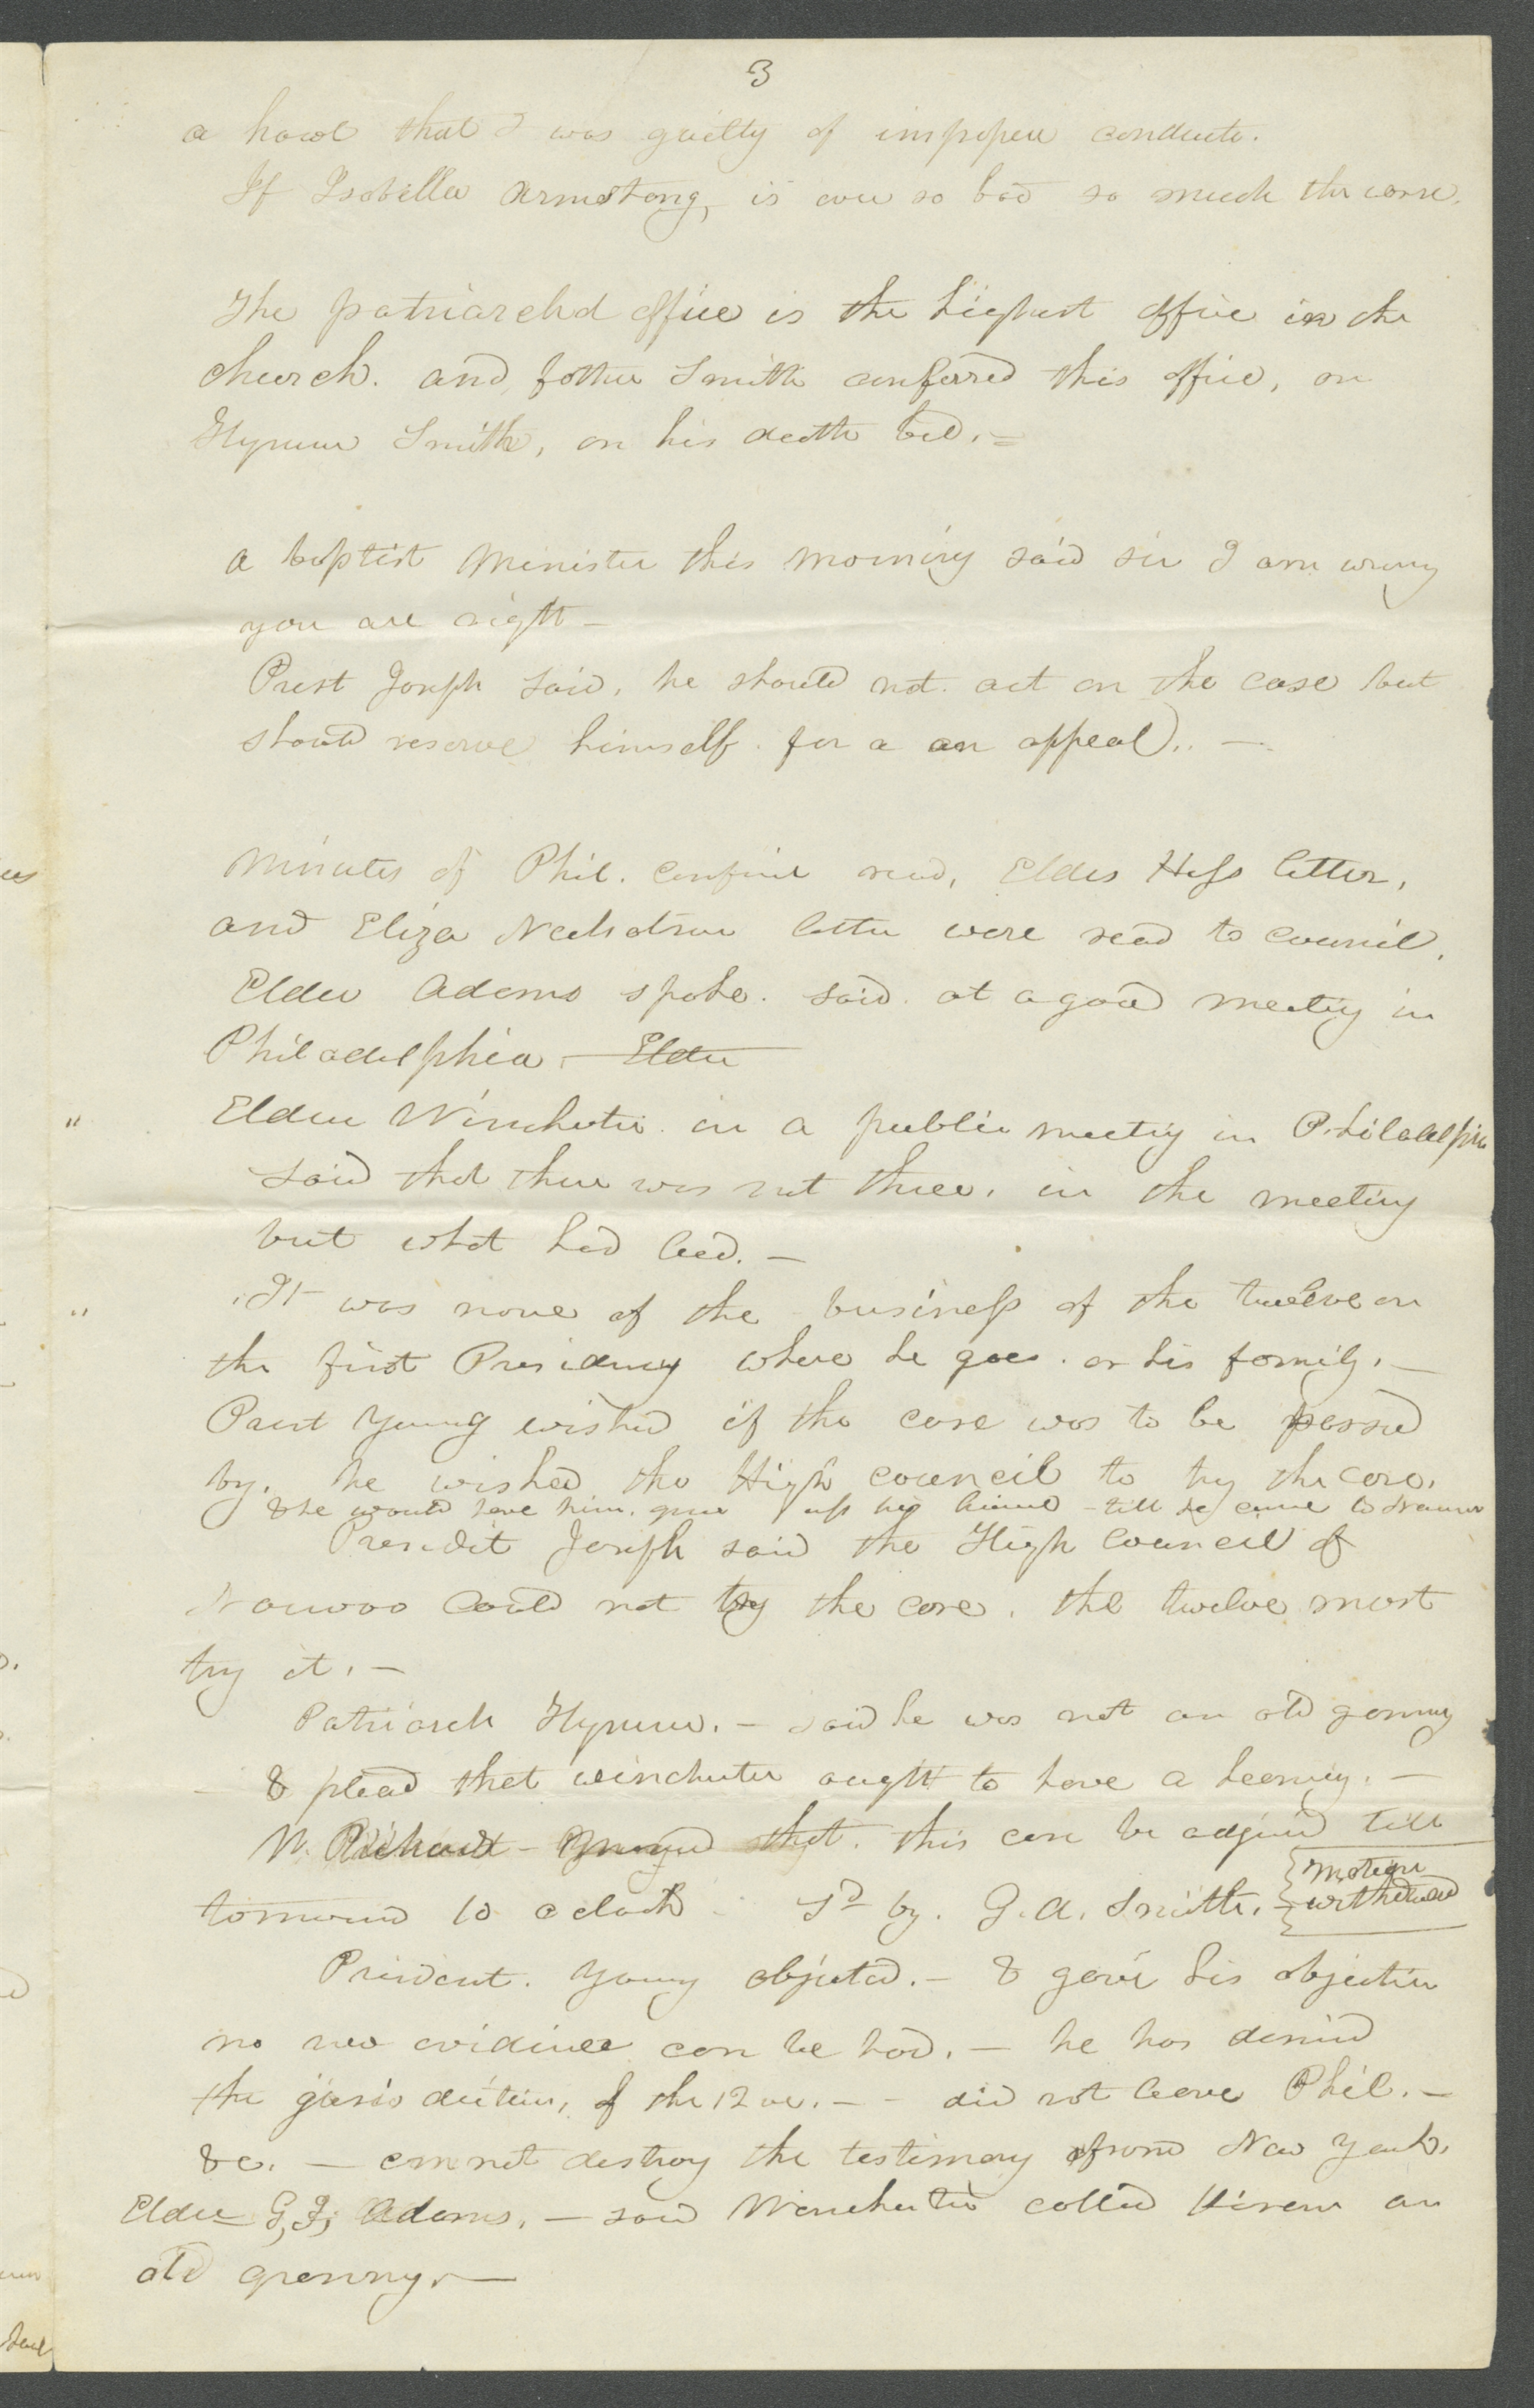 3
a howl that I was guilty of impoper conducte.
If Isabella Armstong, is ever so bad so much the worse.
The patriarchal office is the highest office in the
church. and father Smith conferred this office, on
Hyrum Smith, on his death bed. =
a baptist minister this morning said sir I am wrong
you are right –
Prest Joseph said, he should not act on the case but
should reserve himself. for a an appeal.. —
Minutes of Phil. confince read, Elder Hess letter,
and Eliza letter were read to council.
Elder Adams spoke. said. at a good meeting in
Philadelphia, – Elder
" Elder Winchester in a public meeting in Philadelphia
said that there was not three. in the meeting
but what had lied. –
" It was none of the business of the twelve or
the first Presidency where he goes. or his family. –
Prest Young wished if the case was to be passed
by. he wished the High council to try the case.
& he would have him. give up his license – till he came to Nauvoo
Presidet Joseph said the High Council of
Nauvoo could not try the case. the twelve must
try it. –
Patriarch Hyrum. – said he was not an old granny
– & plead that winchester aught to have a hearing. –
W. Richard – moved that. this case be adjound till
tomorrow 10 oclock 2d by. G. A. Smith. – { motion
withdrawd
President. Young objected. – & gave his objection
no new evidince can be had. – he has denied
the jurisdiction, of the 12 ve. – – did not leave Phil. –
&c. – can not destroy the testimony from New York.
Elder G, J, Adams. – said Winchester called Hirem an
old granny. —